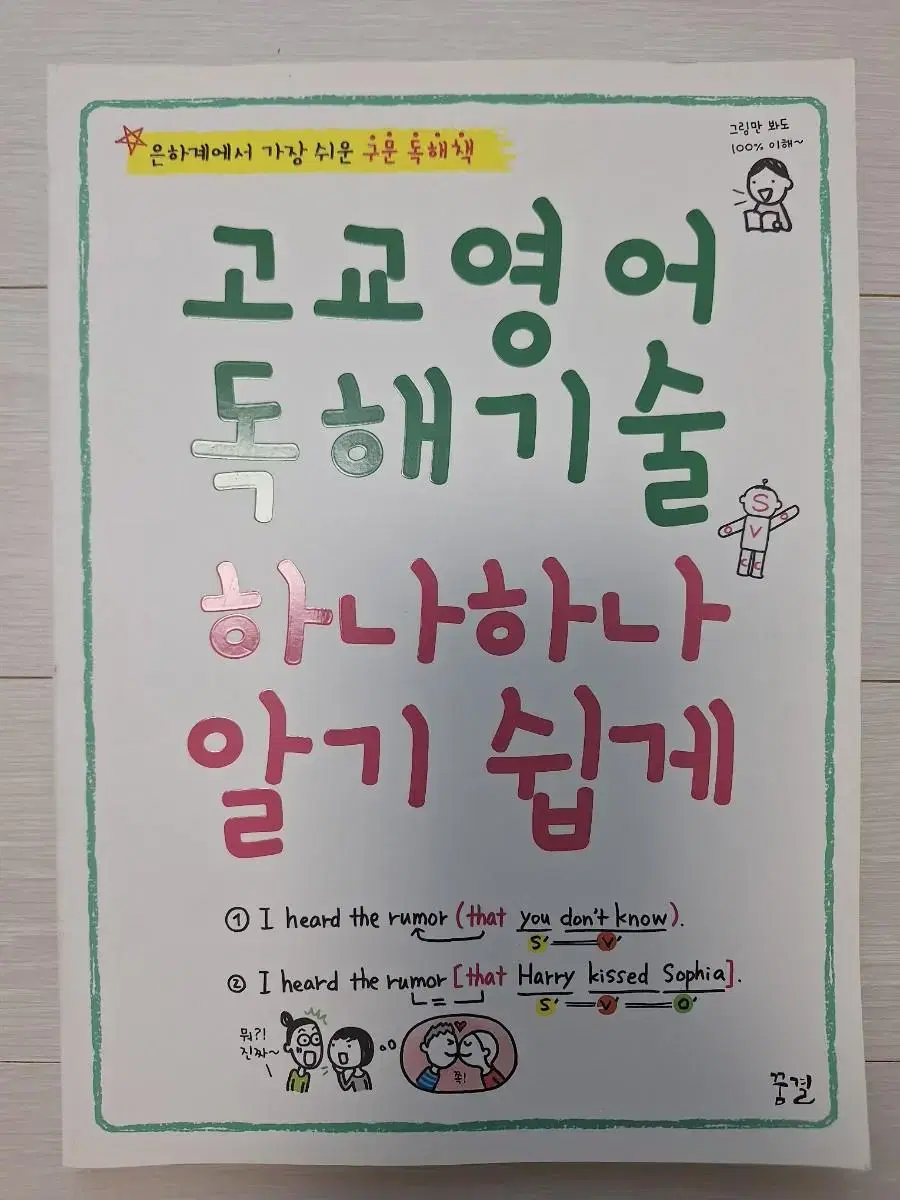 은하계에서 가장 쉬운 구문 독해책
그림만 봐도
100% 이해~
고교영어
독해기술
S
V
O
O
C
C
하나하나
알기 쉽게
① I heard the rumor (that you don't know).
S' V'
② I heard the rumor [that Harry kissed Sophia].
= S' V' O'
뭐?!
진짜~
쪽!
꿈결